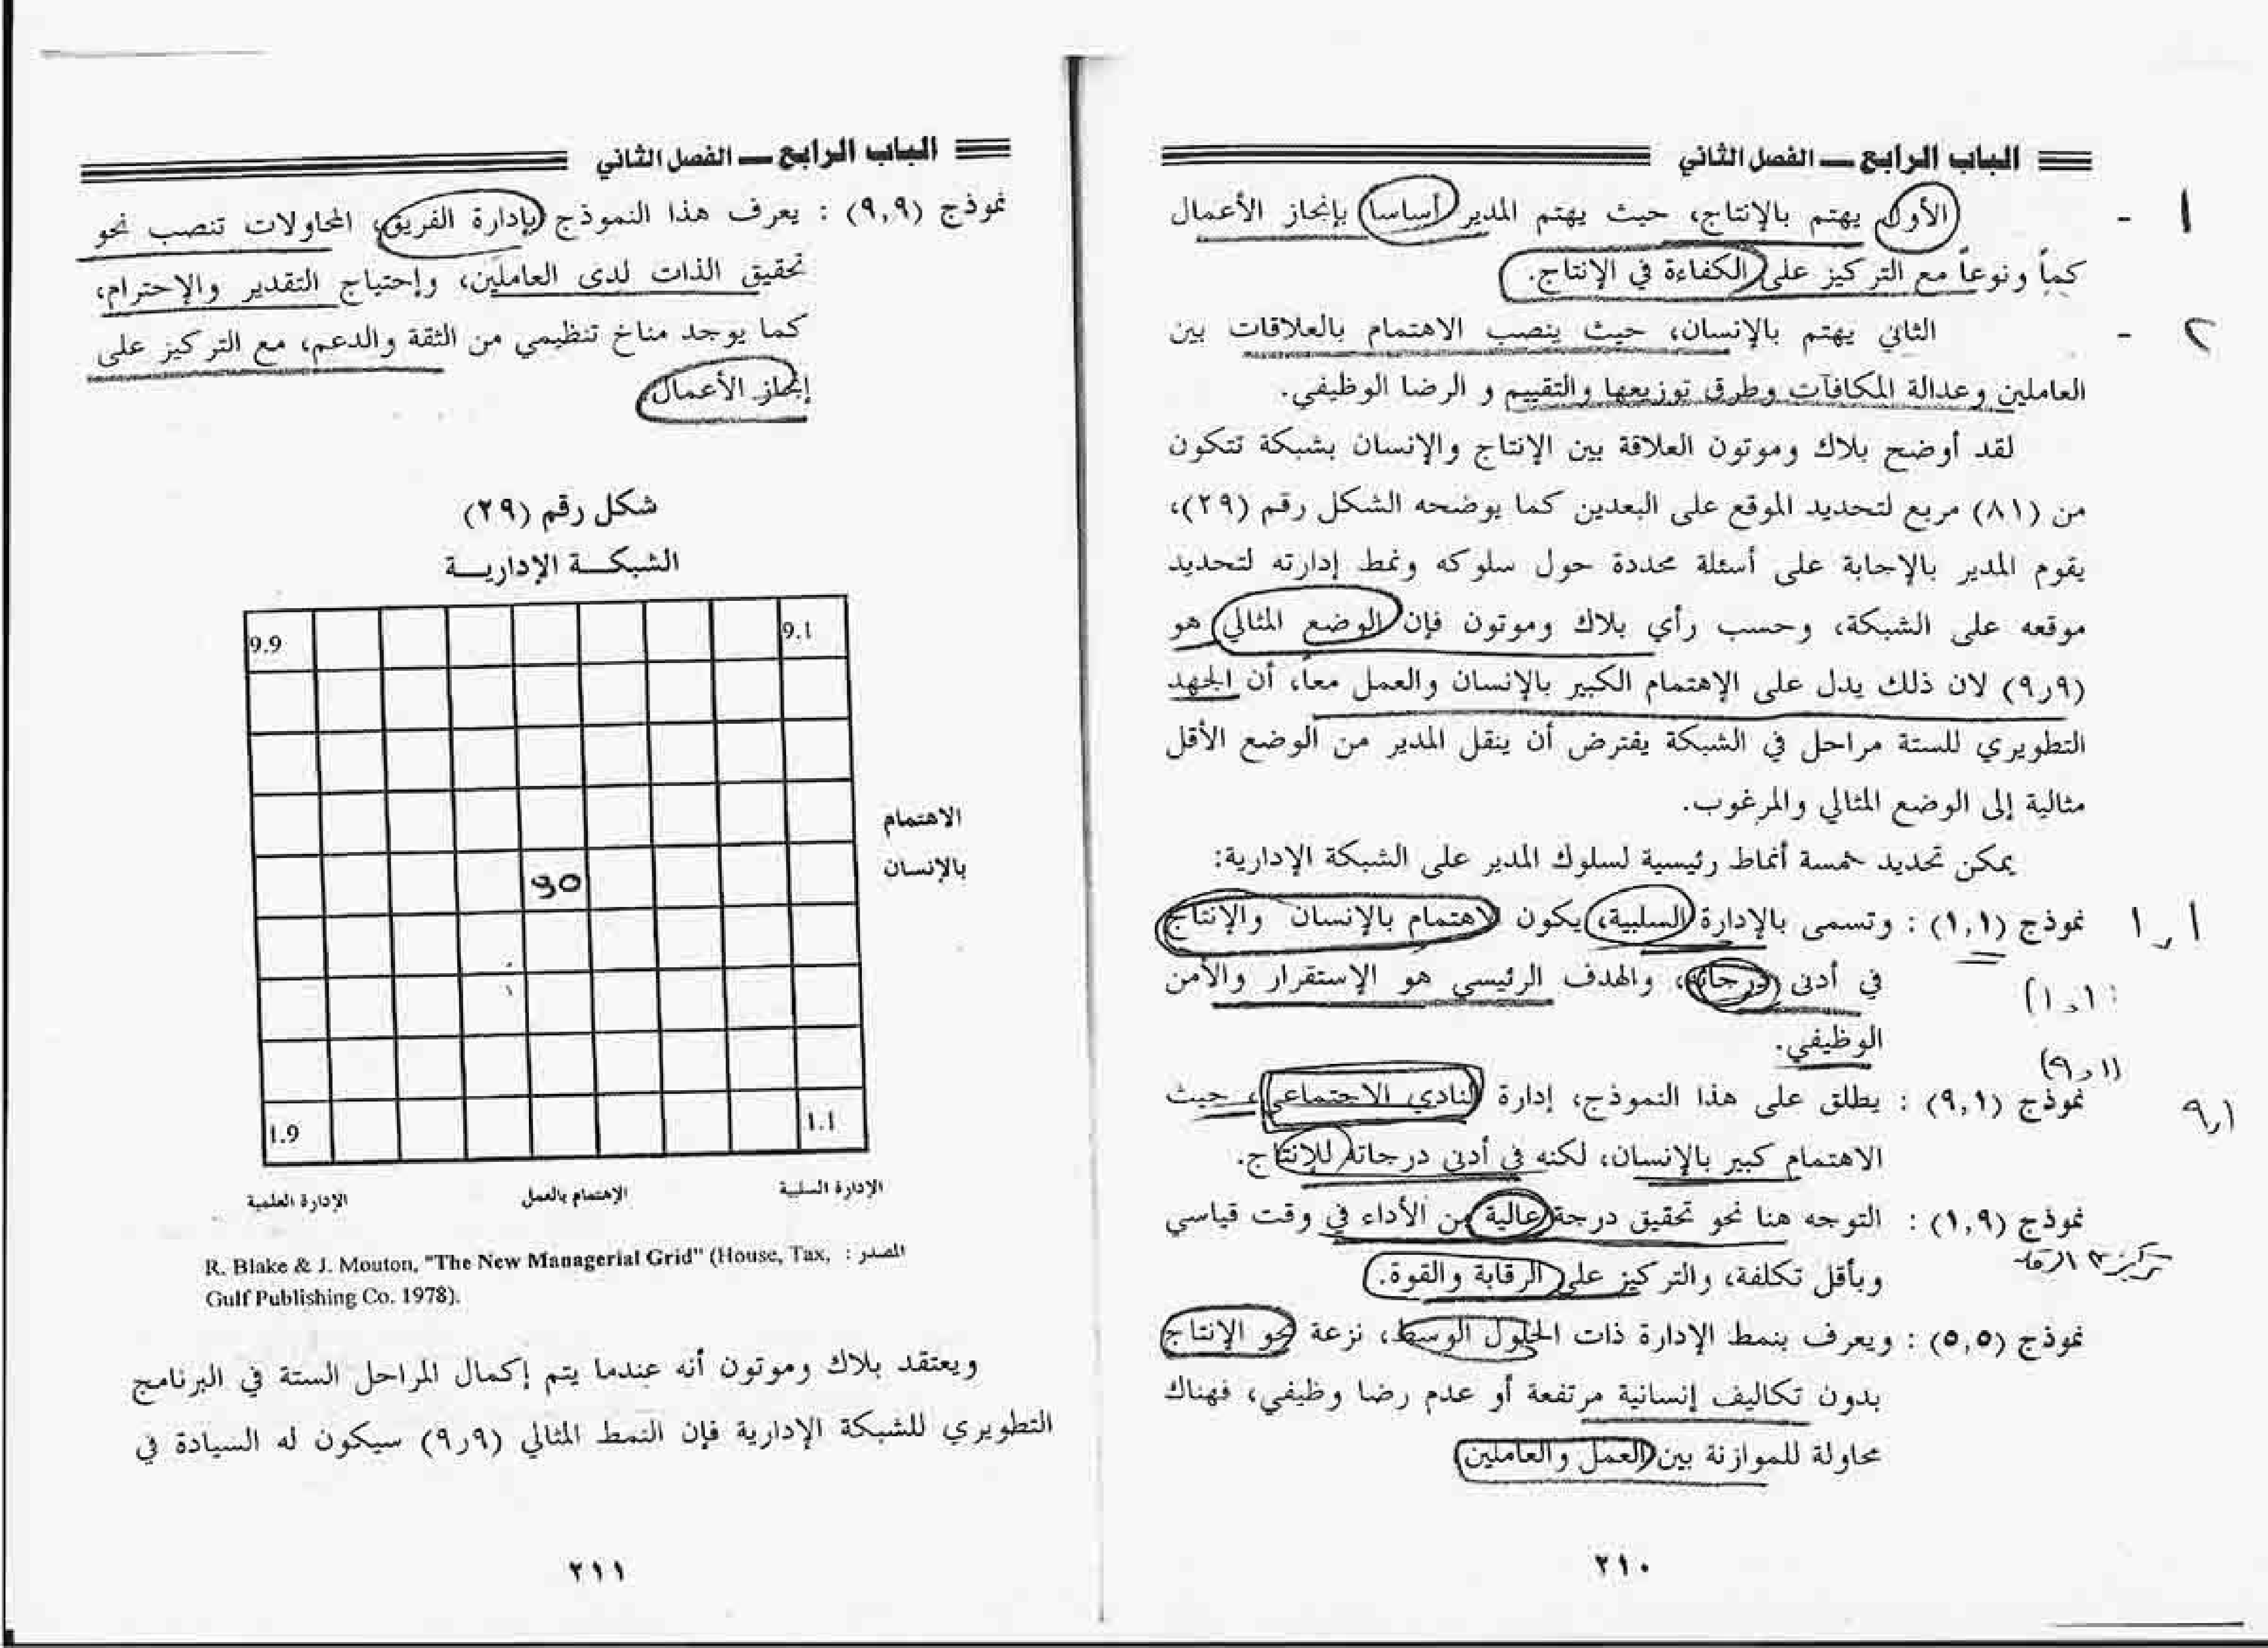 الباب الرابع ـــ الفصل الثاني
١ - الأول يهتم بالإنتاج، حيث يهتم المدير أساسا بإنجاز الأعمال
كماً ونوعاً مع التركيز على الكفاءة في الإنتاج.
٢ - الثاني يهتم بالإنسان، حيث ينصب الاهتمام بالعلاقات بين
العاملين وعدالة المكافآت وطرق توزيعها والتقييم و الرضا الوظيفي.
لقد أوضح بلاك وموتون العلاقة بين الإنتاج والإنسان بشبكة تتكون
من (٨١) مربع لتحديد الموقع على البعدين كما يوضحه الشكل رقم (٢٩)،
يقوم المدير بالإجابة على أسئلة محددة حول سلوكه ونمط إدارته لتحديد
موقعه على الشبكة، وحسب رأي بلاك وموتون فإن الوضع المثالي هو
(٩ر٩) لان ذلك يدل على الإهتمام الكبير بالإنسان والعمل معاً، أن الجهد
التطويري للستة مراحل في الشبكة يفترض أن ينقل المدير من الوضع الأقل
مثالية إلى الوضع المثالي والمرغوب.
يمكن تحديد خمسة أنماط رئيسية لسلوك المدير على الشبكة الإدارية:
١ر١
نموذج (١,١) : وتسمى بالإدارة السلبية، يكون الاهتمام بالإنسان والإنتاج
في أدنى درجاته، والهدف الرئيسي هو الإستقرار والأمن
الوظيفي.
٩ر١
نموذج (٩,١) : يطلق على هذا النموذج، إدارة النادي الاجتماعي، حيث
الاهتمام كبير بالإنسان، لكنه في أدنى درجاته للإنتاج.
نموذج (١,٩) : التوجه هنا نحو تحقيق درجة عالية من الأداء في وقت قياسي
وبأقل تكلفة، والتركيز على الرقابة والقوة.
نموذج (٥,٥) : ويعرف بنمط الإدارة ذات الحلول الوسط، نزعة نحو الإنتاج
بدون تكاليف إنسانية مرتفعة أو عدم رضا وظيفي، فهناك
محاولة للموازنة بين العمل والعاملين
٢١٠
الباب الرابع ـــ الفصل الثاني
نموذج (٩,٩) : يعرف هذا النموذج بإدارة الفريق، المحاولات تنصب نحو
تحقيق الذات لدى العاملين، وإحتياج التقدير والإحترام،
كما يوجد مناخ تنظيمي من الثقة والدعم، مع التركيز على
إنجاز الأعمال.
شكل رقم (٢٩)
الشبكـــة الإداريـــة
9.9
9.1
الاهتمام
بالإنسان
1.9
1.1
الإدارة السلبية
الإهتمام بالعمل
الإدارة العلمية
المصدر : R. Blake & J. Mouton, "The New Managerial Grid" (House, Tax,
Gulf Publishing Co. 1978).
ويعتقد بلاك وموتون أنه عندما يتم إكمال المراحل الستة في البرنامج
التطويري للشبكة الإدارية فإن النمط المثالي (٩ر٩) سيكون له السيادة في
٢١١